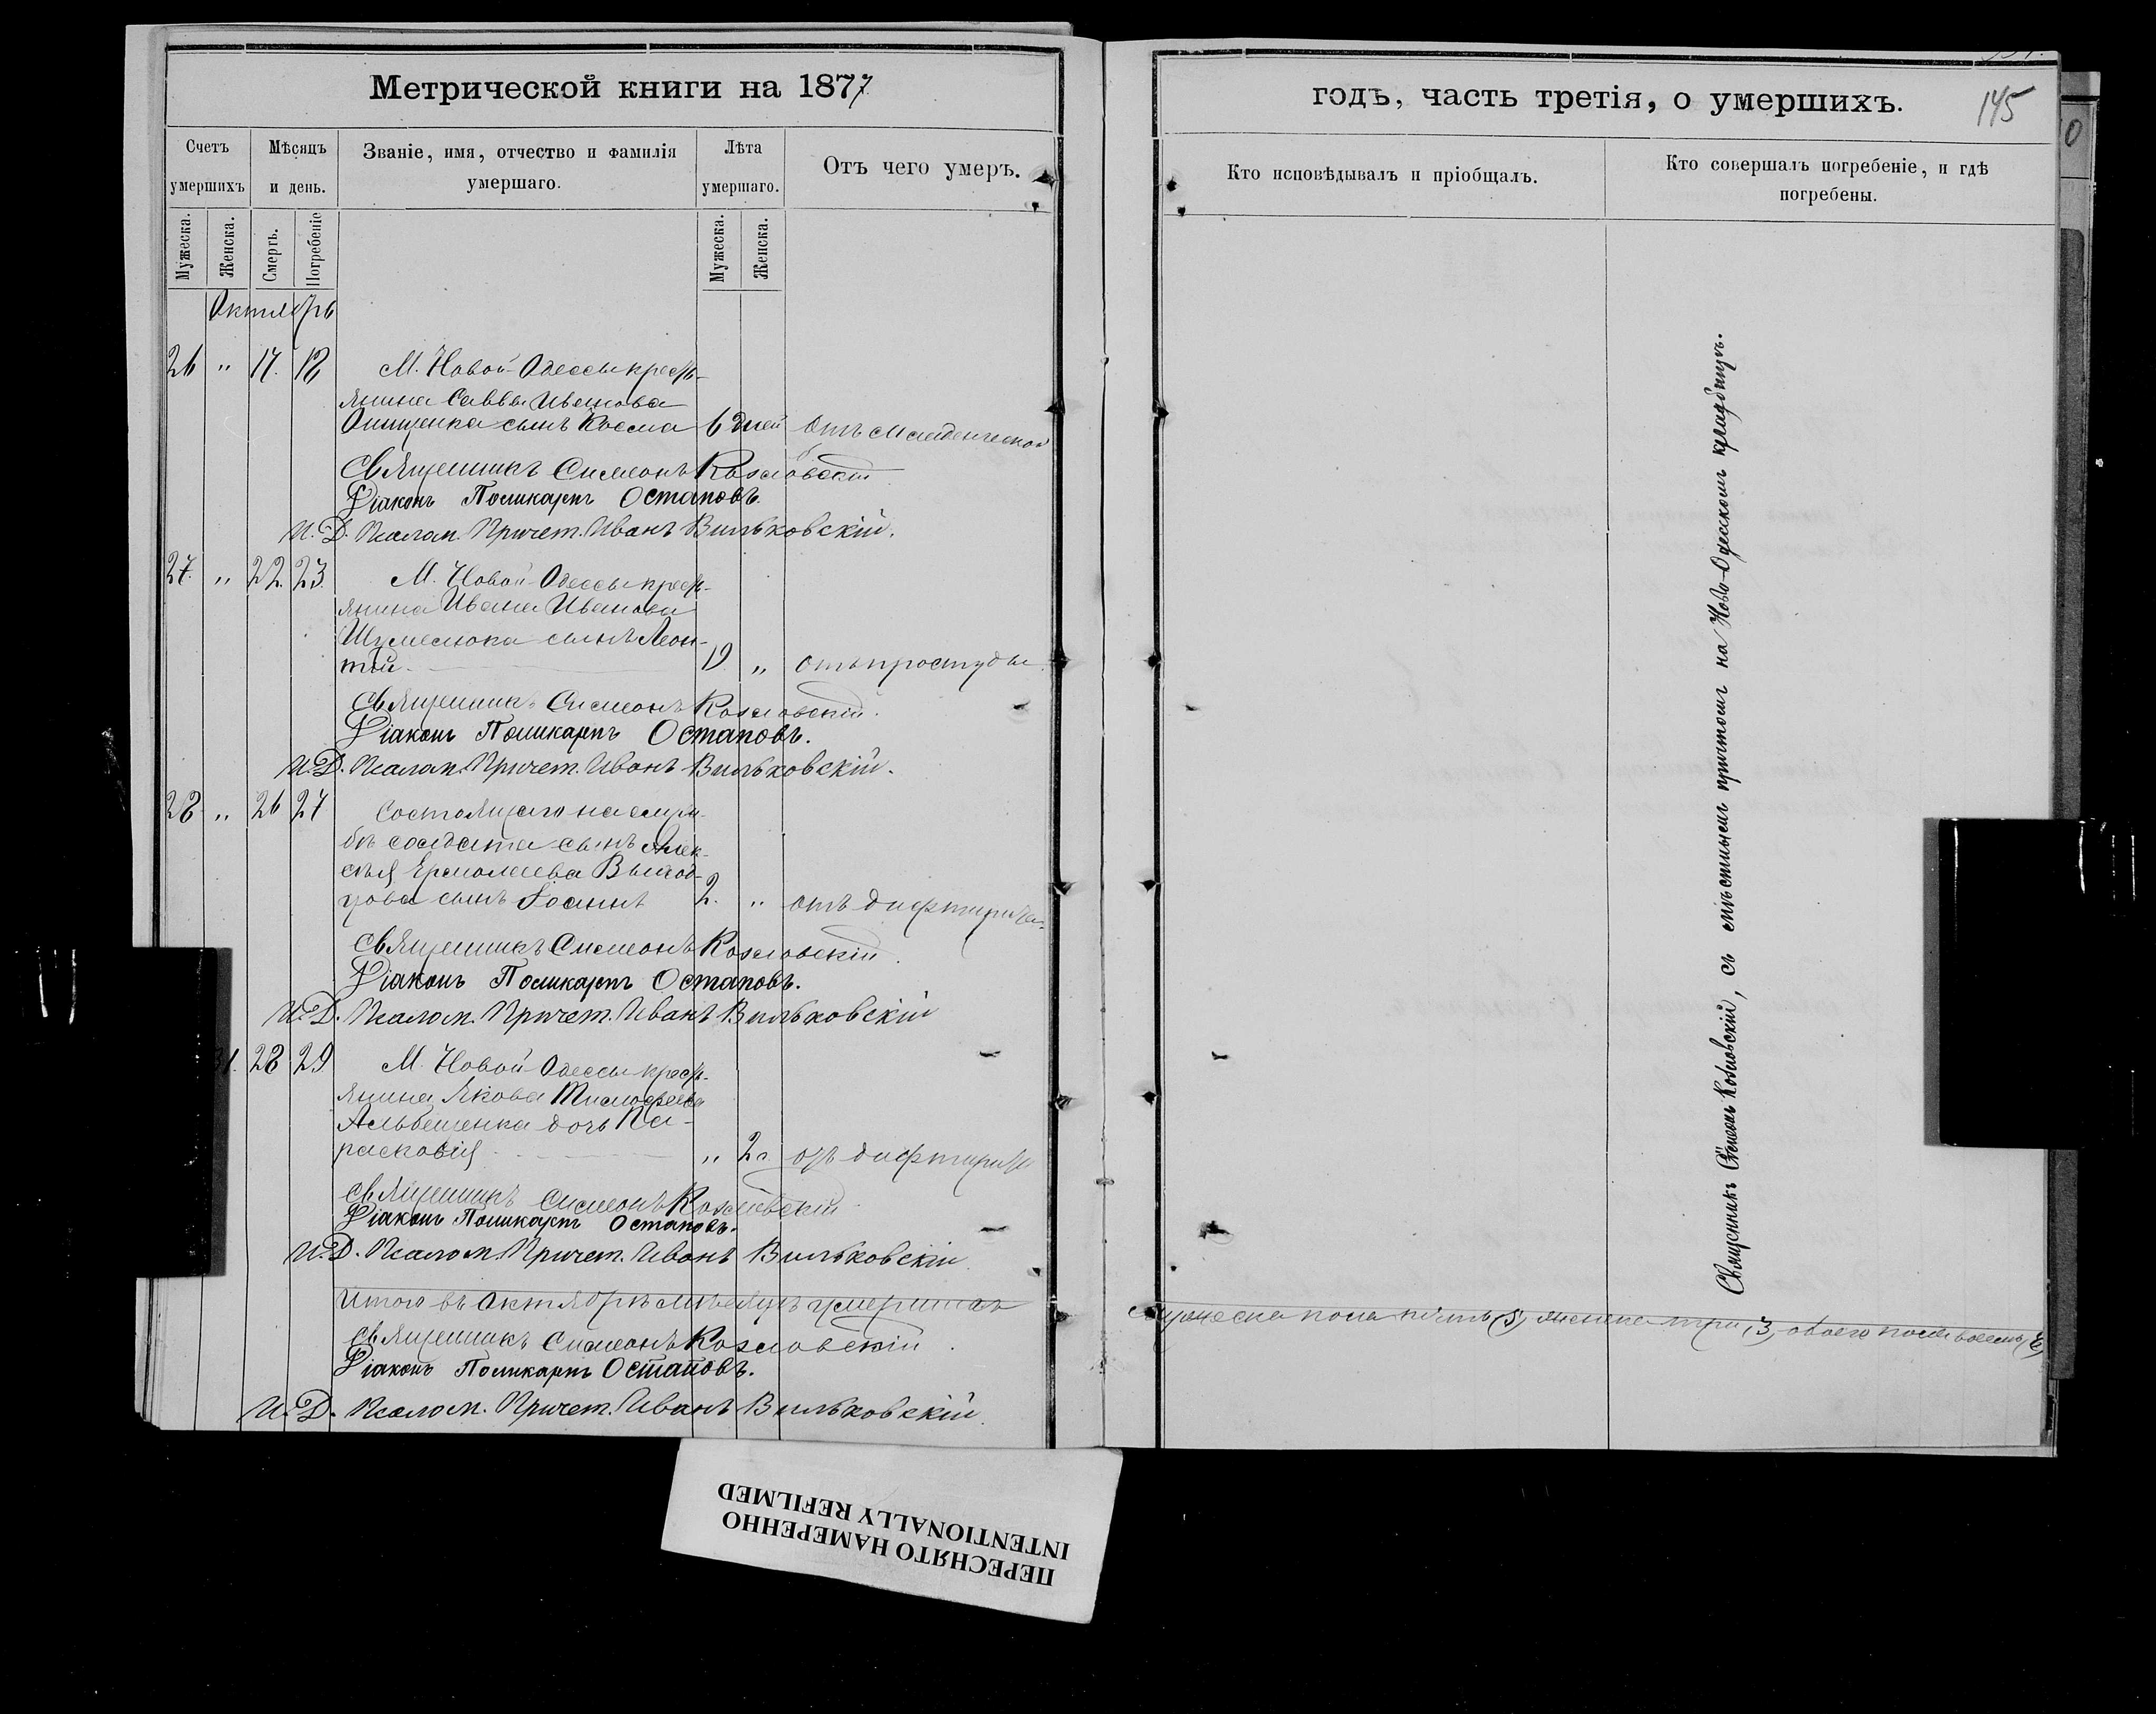 Метрической книги на 1877
годъ, часть третія, о умершихъ.
145
Счетъ умершихъ
Мѣсяцъ и день.
Званіе, имя, отчество и фамилія умершаго.
Лѣта умершаго.
Отъ чего умеръ.
Кто исповѣдывалъ и пріобщалъ.
Кто совершалъ погребеніе, и гдѣ погребены.
Мужеска.
Женска.
Смерть.
Погребеніе
Мужеска.
Женска.
Октябрь
26 " 17. 18 М. Новой-Одессы кресть-
янина Саввы Иванова
Онищенка сынъ Косма 6 дней отъ младенческой
Священникъ Симеонъ Козловскій
Діаконъ Поликарпъ Остаповъ.
И. Д. Псалом. Причет. Иванъ Вильковскій.
27. " 22. 23. М. Новой-Одессы кресть-
янина Ивана Иванова
сынъ Леон-
тій 19. " отъ простуды
Священникъ Симеонъ Козловскій.
Діаконъ Поликарпъ Остаповъ.
И. Д. Псалом. Причет. Иванъ Вильковскій.
28 " 26 27 Состоящаго на служ-
бѣ солдата сынъ Алек-
сѣя Ермолаева
сынъ Іоаннъ 2. " отъ дифтирита.
Священникъ Симеонъ Козловскій.
Діаконъ Поликарпъ Остаповъ.
И. Д. Псалом. Причет. Иванъ Вильковскій
31. 28 29 М. Новой-Одессы кресть-
янина Якова Тимофеева
дочь Па-
расковія " 2 г. отъ дифтирита
Священникъ Симеонъ Козловскій
Діаконъ Поликарпъ Остаповъ.
И. Д. Псалом. Причет. Иванъ Вильковскій
Итого въ Октябрѣ мѣсяцѣ умершихъ мужеска пола пять, (5), женска три, 3, обоего пола восемь, (8)
Священникъ Симеонъ Козловскій.
Діаконъ Поликарпъ Остаповъ.
И. Д. Псалом. Причет. Иванъ Вильковскій.
Священникъ Симеонъ Козловскій, съ мѣстнымъ причтомъ на Ново-Одесскомъ кладбищѣ.
ПЕРЕСНЯТО НАМЕРЕННО
INTENTIONALLY REFILMED